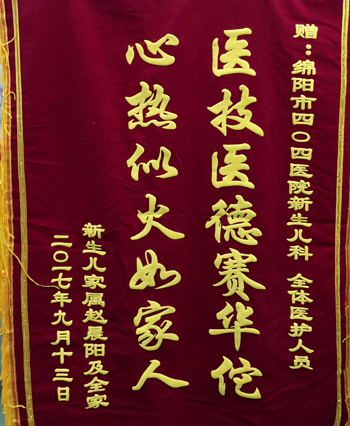 赠：绵阳市四〇四医院新生儿科 全体医护人员
医技医德赛华佗
心热似火如家人
新生儿家属赵晨阳及全家
二〇一七年九月十三日